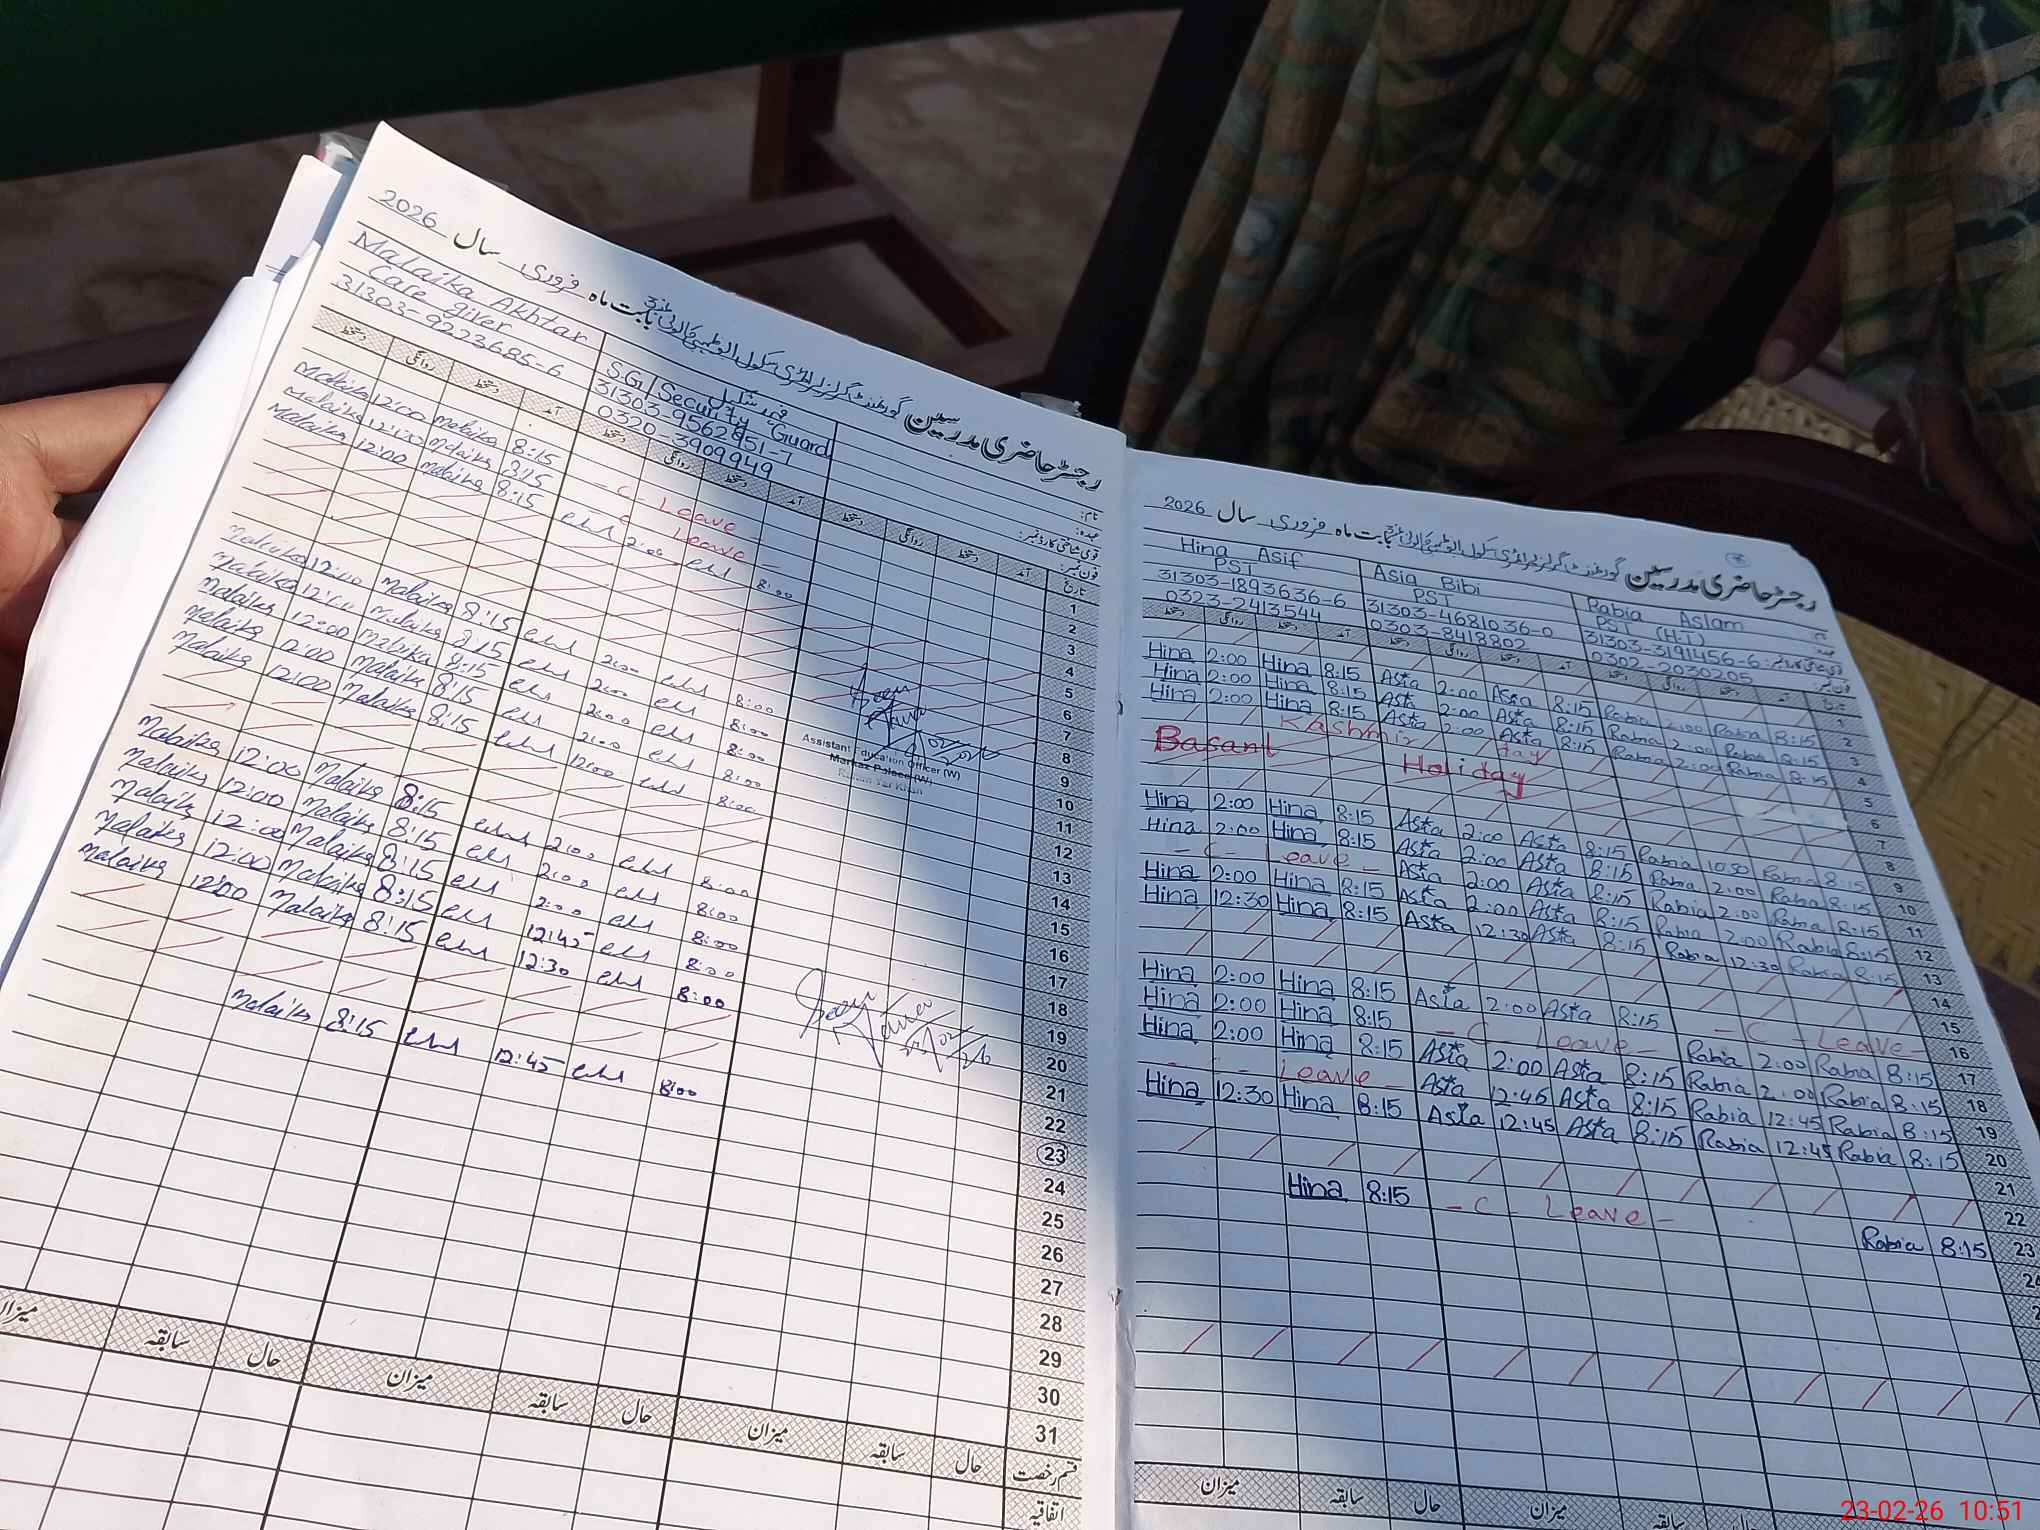 2026 سال فروری بابت ماہ گورنمنٹ گرلز پرائمری سکول رجسٹر حاضری مدرسین
Malaika Akhtar
Care giver
31303-9223685-6
S.G / Security Guard
31303-9562851-7
0320-3909949
نام:
عہدہ:
قومی شناختی کارڈ نمبر:
فون نمبر:
دستخط روانگی دستخط آمد دستخط روانگی دستخط آمد دستخط روانگی دستخط آمد تاریخ
1
Malaika 12:00 Malaika 8:15 - C - Leave - 2
Malaika 12:00 Malaika 8:15 - C - Leave - 3
Malaika 12:00 Malaika 8:15 2:00 8:00 4
5
6
7
8
Malaika 12:00 Malaika 8:15 2:00 8:00 9
Malaika 12:00 Malaika 8:15 2:00 8:00 10
Malaika 12:00 Malaika 8:15 2:00 8:00 11
Malaika 12:00 Malaika 8:15 2:00 8:00 12
Malaika 12:00 Malaika 8:15 12:00 8:00 13
14
15
Malaika 12:00 Malaika 8:15 2:00 8:00 16
Malaika 12:00 Malaika 8:15 2:00 8:00 17
Malaika 12:00 Malaika 8:15 2:00 8:00 18
Malaika 12:00 Malaika 8:15 12:45 8:00 19
Malaika 12:00 Malaika 8:15 12:30 8:00 20
21
22
Malaika 8:15 12:45 8:00 23
24
25
26
27
28
29
30
31
Assistant Education Officer (W)
Markaz Palace (W)
Rahim Yar Khan
میزان سابقہ حال میزان سابقہ حال میزان سابقہ حال قسم رخصت
اتفاقیہ
2026 سال فروری بابت ماہ گورنمنٹ گرلز پرائمری سکول رجسٹر حاضری مدرسین
Hina Asif
PST
31303-1893636-6
0323-2413544
Asia Bibi
PST
31303-4681036-0
0303-8418802
Rabia Aslam
PST (H-T)
31303-3191456-6
0302-2030205
دستخط روانگی دستخط آمد دستخط روانگی دستخط آمد دستخط روانگی دستخط آمد تاریخ
1
Hina 2:00 Hina 8:15 Asia 2:00 Asia 8:15 Rabia 2:00 Rabia 8:15 2
Hina 2:00 Hina 8:15 Asia 2:00 Asia 8:15 Rabia 2:00 Rabia 8:15 3
Hina 2:00 Hina 8:15 Asia 2:00 Asia 8:15 Rabia 2:00 Rabia 8:15 4
Kashmir Day 5
Basant Holiday 6
7
8
Hina 2:00 Hina 8:15 Asia 2:00 Asia 8:15 Rabia 10:50 Rabia 8:15 9
Hina 2:00 Hina 8:15 Asia 2:00 Asia 8:15 Rabia 2:00 Rabia 8:15 10
- C - Leave - Asia 2:00 Asia 8:15 Rabia 2:00 Rabia 8:15 11
Hina 2:00 Hina 8:15 Asia 2:00 Asia 8:15 Rabia 2:00 Rabia 8:15 12
Hina 12:30 Hina 8:15 Asia 12:30 Asia 8:15 Rabia 12:30 Rabia 8:15 13
14
15
Hina 2:00 Hina 8:15 Asia 2:00 Asia 8:15 - C - Leave - 16
Hina 2:00 Hina 8:15 - C - Leave - Rabia 2:00 Rabia 8:15 17
Hina 2:00 Hina 8:15 Asia 2:00 Asia 8:15 Rabia 2:00 Rabia 8:15 18
- C - Leave - Asia 12:45 Asia 8:15 Rabia 12:45 Rabia 8:15 19
Hina 12:30 Hina 8:15 Asia 12:45 Asia 8:15 Rabia 12:45 Rabia 8:15 20
21
22
Hina 8:15 - C - Leave - Rabia 8:15 23
میزان سابقہ حال میزان سابقہ
23-02-26 10:51